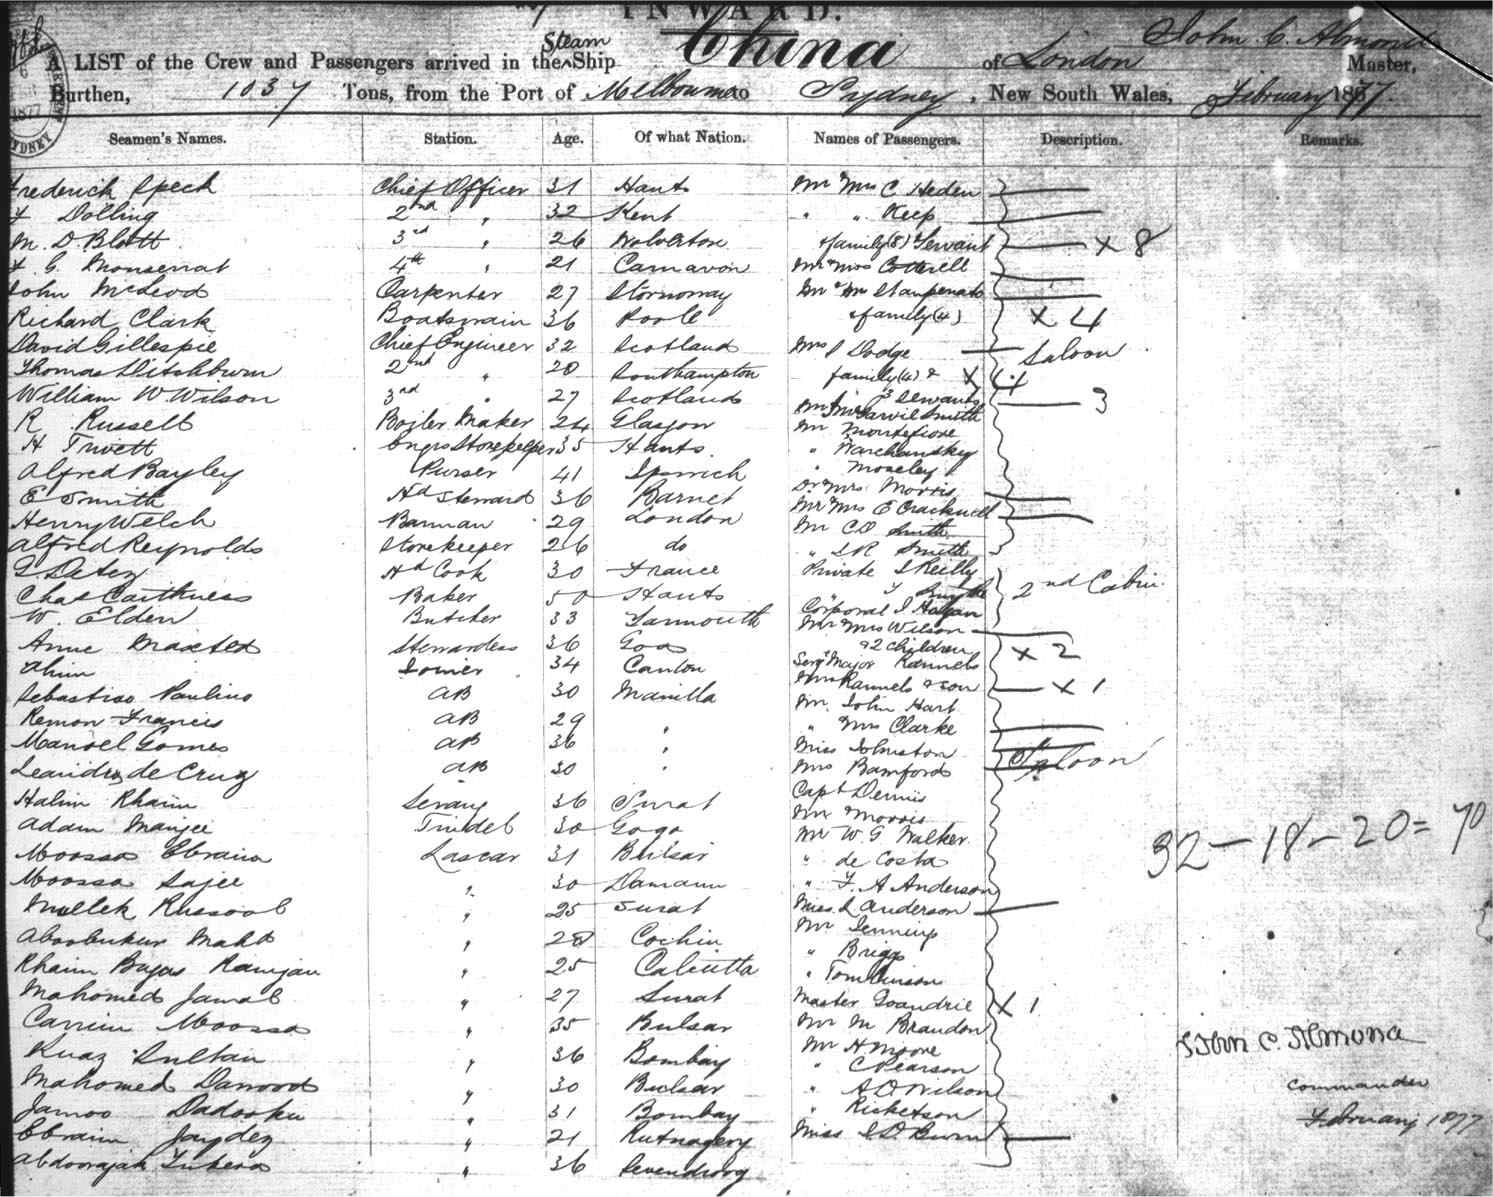 INWARD.
A LIST of the Crew and Passengers arrived in the Steam Ship China of London John C. Almond Master,
Burthen, 1037 Tons, from the Port of Melbourne to Sydney, New South Wales, February 1877.
Seamen's Names. Station. Age. Of what Nation. Names of Passengers. Description. Remarks.
Frederick Speck Chief Officer 31 Hants Mr Mrs C. Heden
F Dolling 2nd " 32 Kent " " Keep
M. D. Blott 3rd " 26 Wolverton & family (8) Servant x 8
F. C. Monserrat 4th " 21 Carnavon Mr & Mrs Cotterell
John McLeod Carpenter 27 Stornoway Mr & Mrs
Richard Clark Boatswain 36 Poole & family (4) x 4
David Gillespie Chief Engineer 32 Scotland Mrs Dodge Saloon
Thomas Ditchburn 2nd " 28 Southampton family (4) & x 4
William W Wilson 3rd " 27 Scotland 3 Servants 3
R Russell Boiler Maker 24 Glasgow Mr Mrs Jarvie Smith
H Trivett Engrs Storekeeper 35 Hants. Mr Montefiore
Alfred Bayley Purser 41 Ipswich " Warchansky
" Moseley
E Smith Hd Steward 36 Barnet Dr Mrs Morris
Henry Welch Barman 29 London Mr Mrs E Cracknell
Alfred Reynolds Storekeeper 26 do Mr CO Smith
" S R Smith
Hd Cook 30 France Private J Reilly
Chas Caithness Baker 50 Hants " J 2nd Cabin
W. Elden Butcher 33 Yarmouth Corporal J Hogan
Anne Maxted Stewardess 36 Goa Mr Mrs Wilson
& 2 children x 2
Ahim Joiner 34 Canton Sergt Major Rannels
Sebastiao Paulino AB 30 Manilla Mrs Rannels & son x 1
Remon Francis AB 29 " Mr. John Hart
Manoel Gomes AB 36 " " Mrs Clarke
Leandro de Cruz AB 30 " Miss Johnston
Mrs Bamford Saloon
Halim Rhaim Serang 36 Surat Capt Dennis
Adam Manjee Tindel 30 Gogo Mr Morris
Moossa Ebraim Lascar 31 Bulsar Mr W. G Walker 32 - 18 - 20 = 70
" de Costa
Moossa Sajee " 30 Damaun " F. A Anderson
Mullek Russool " 25 Surat Miss L Anderson
Aboobukur Mahd " 28 Cochin Mr Jennings
" Briggs
Rhaim Bugas Ramjan " 25 Calcutta " Tomlinson
Mahomed Jamal " 27 Surat Master Goandrie x 1
Carrim Moossa " 35 Bulsar Mr M Brandon
Ruaz Sultan " 36 Bombay Mr H Moore
" C Pearson John C. Almond
Mahomed Dawood " 30 Bulsar " A D Wilson Commander
Jamoo Dadooku " 31 Bombay " Ricketson February 1877
Ebraim Jaydez " 21 Rutnagery Miss S D Burn
" 36 Sevendroog